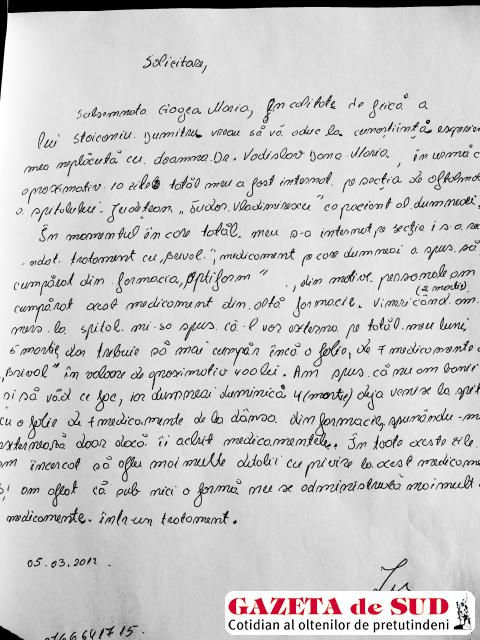 Solicitare,
Subsemnata Giogea Maria, în calitate de fiică a
lui Stoiconiu Dumitru vreau să vă aduc la cunoștiință experien
mea neplăcută cu doamna Dr. Vadislav Dana Maria, în urmă c
aproximativ 10 zile tatăl meu a fost internat pe secția de oftalmo
a spitalului Județean „Tudor Vladimirescu" ca pacient al dumneaei.
În momentul în care tatăl meu s-a internat pe secție i s-a re
ndat tratament cu medicament pe care dumneaei a spus să
cumpărat din farmacia „Optiform" , din motive personale am
cumpărat acest medicament din altă farmacie. Vineri când am
(2 martie)
mers la spital mi-sa spus că-l vor externa pe tatăl meu luni
5 martie, dar trebuie să mai cumpăr încă o folie, de 7 medicamente
în valoare de aproximativ 400 lei. Am spus că nu am banii
și să văd ce fac, iar dumneaei duminică 4 (martie) deja venise la spit
cu o folie de 7 medicamente de la dânsa din farmacie, spunându-m
externează doar dacă îi achit medicamentele. În toate aceste zile
am încercat să aflu mai multe detalii cu privire la acest medicame
și am aflat că sub nici o formă nu se administrează mai mult
medicamente într-un tratament.
05.03.2012
0766641715.
GAZETA de SUD
Cotidian al oltenilor de pretutindeni